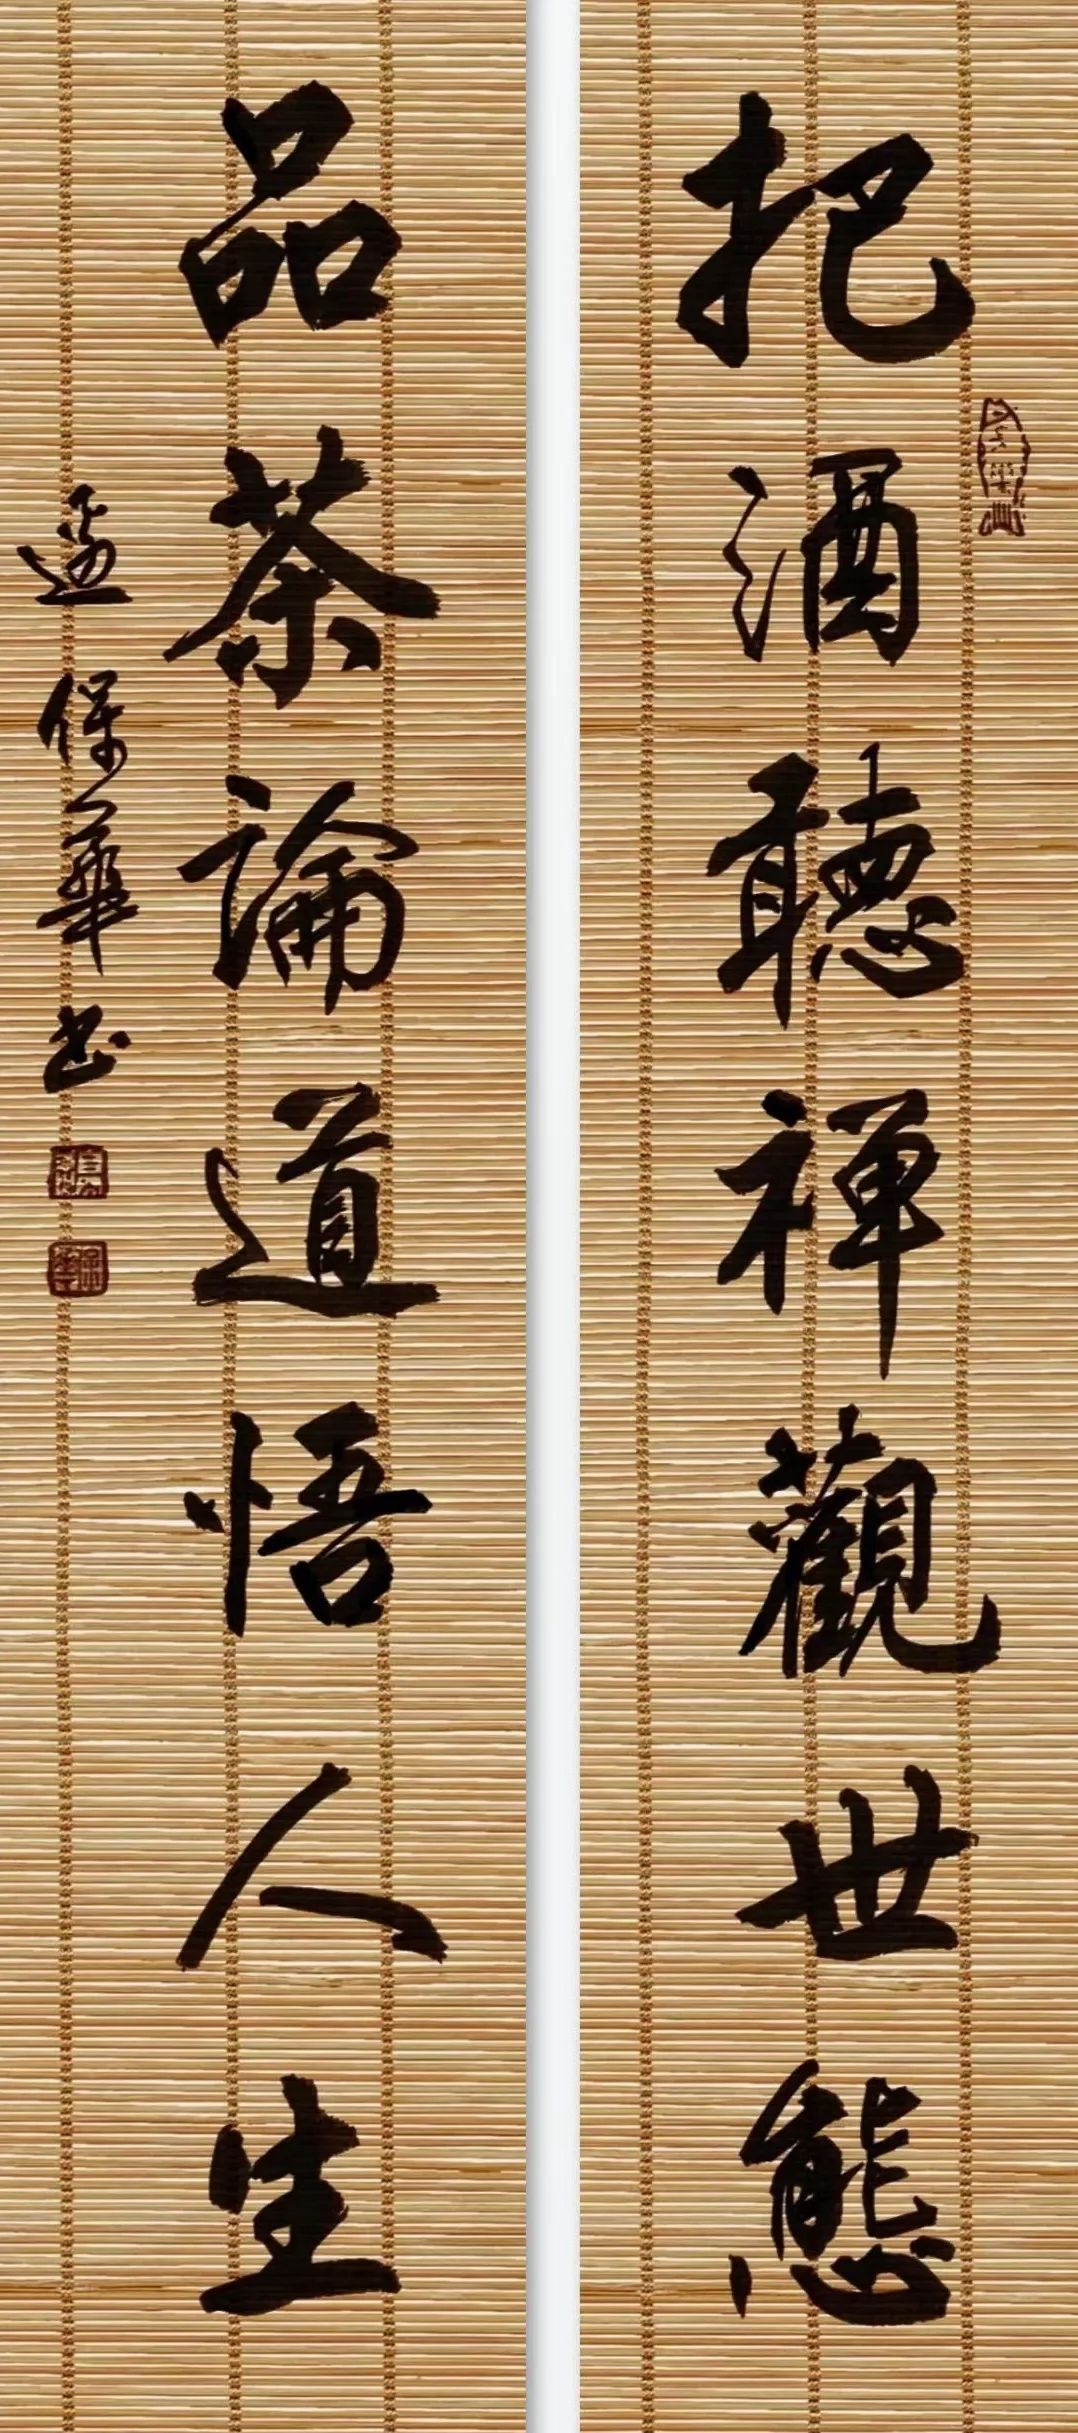 把酒聽禪觀世態
品茶論道悟人生
保華書